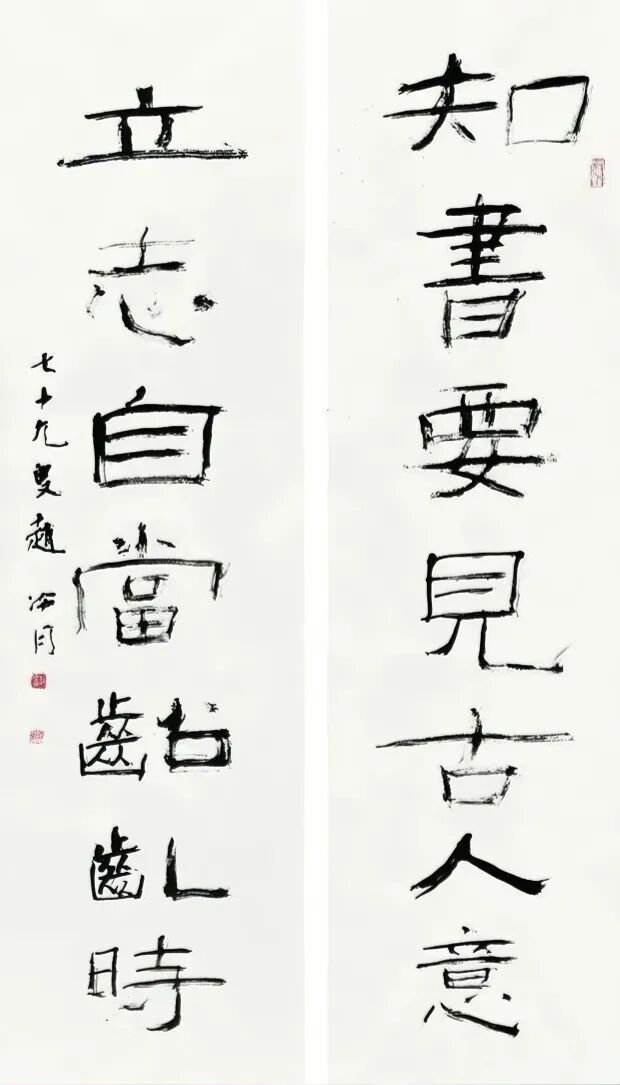 知書要見古人意
立志自當齠齔時
七十九叟趙海明